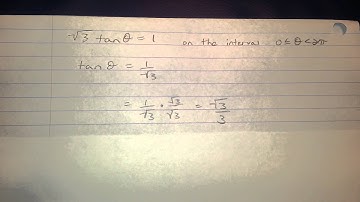 √3 tanθ = 1 on the interval 0 ≤ θ < 2π
tanθ = 1/√3
= 1/√3 · √3/√3 = √3/3